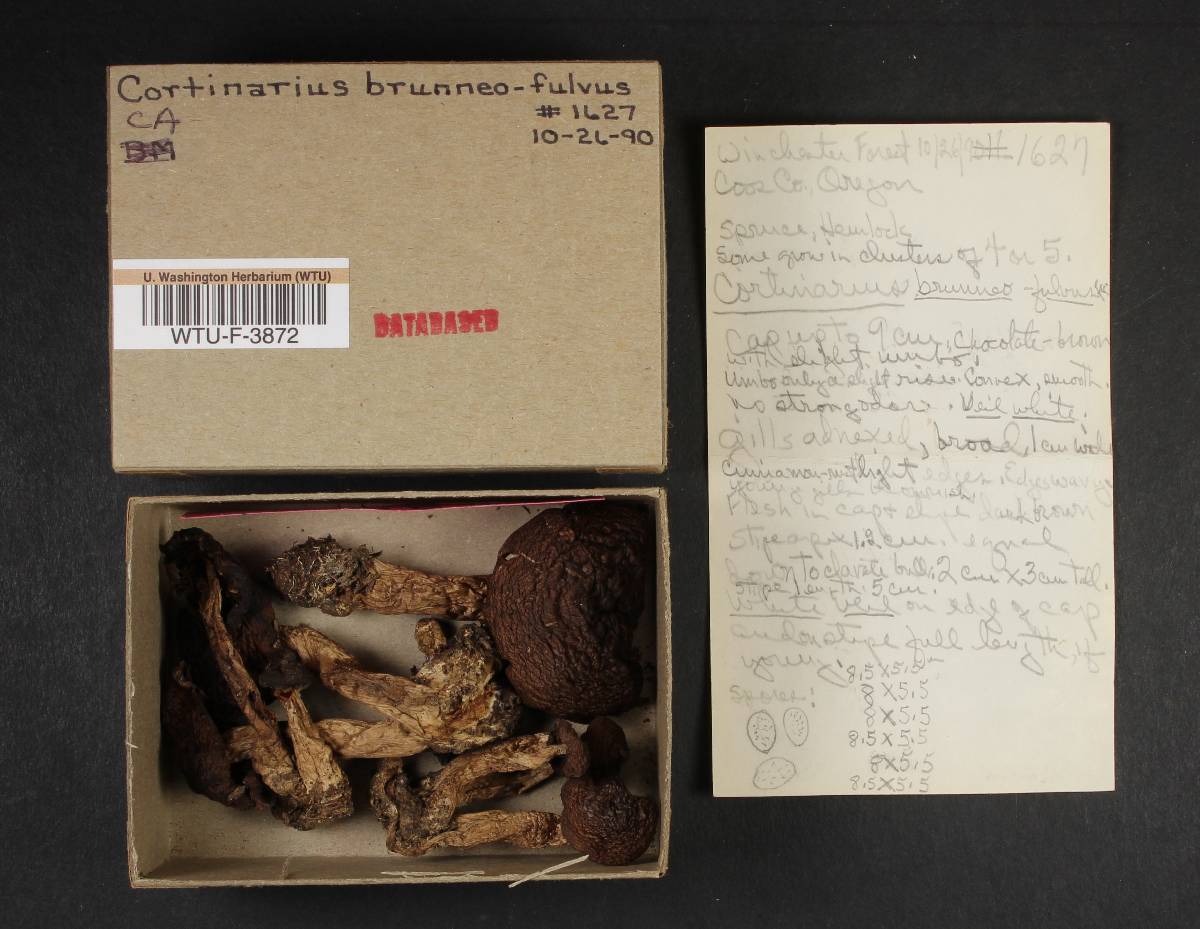 Cortinarius brunneo-fulvus
CA
# 1627
BM
10-26-90
U. Washington Herbarium (WTU)
WTU-F-3872
DATABASED
Winchester Forest 10/26/90 # 1627
Coos Co., Oregon
Spruce, Hemlock
Some grow in clusters of 4 or 5.
Cortinarius brunneo-fulvus
Cap up to 9 cm, chocolate-brown
with slight umbo.
Umbo only a slight rise. Convex, smooth.
No strong odor. Veil white.
Gills adnexed, broad, 1 cm wide
Cinnamon with light edges. Edges wavy
young gills
Flesh in cap & stipe dark brown
Stipe apex 1.2 cm. equal
down to clavate bulb. 2 cm x 3 cm tall.
Stipe length 5 cm.
White Veil on edge of cap
and on stipe full length, if
young.
8.5 x 5.5
Spores:
8 x 5.5
8 x 5.5
8.5 x 5.5
8 x 5.5
8.5 x 5.5